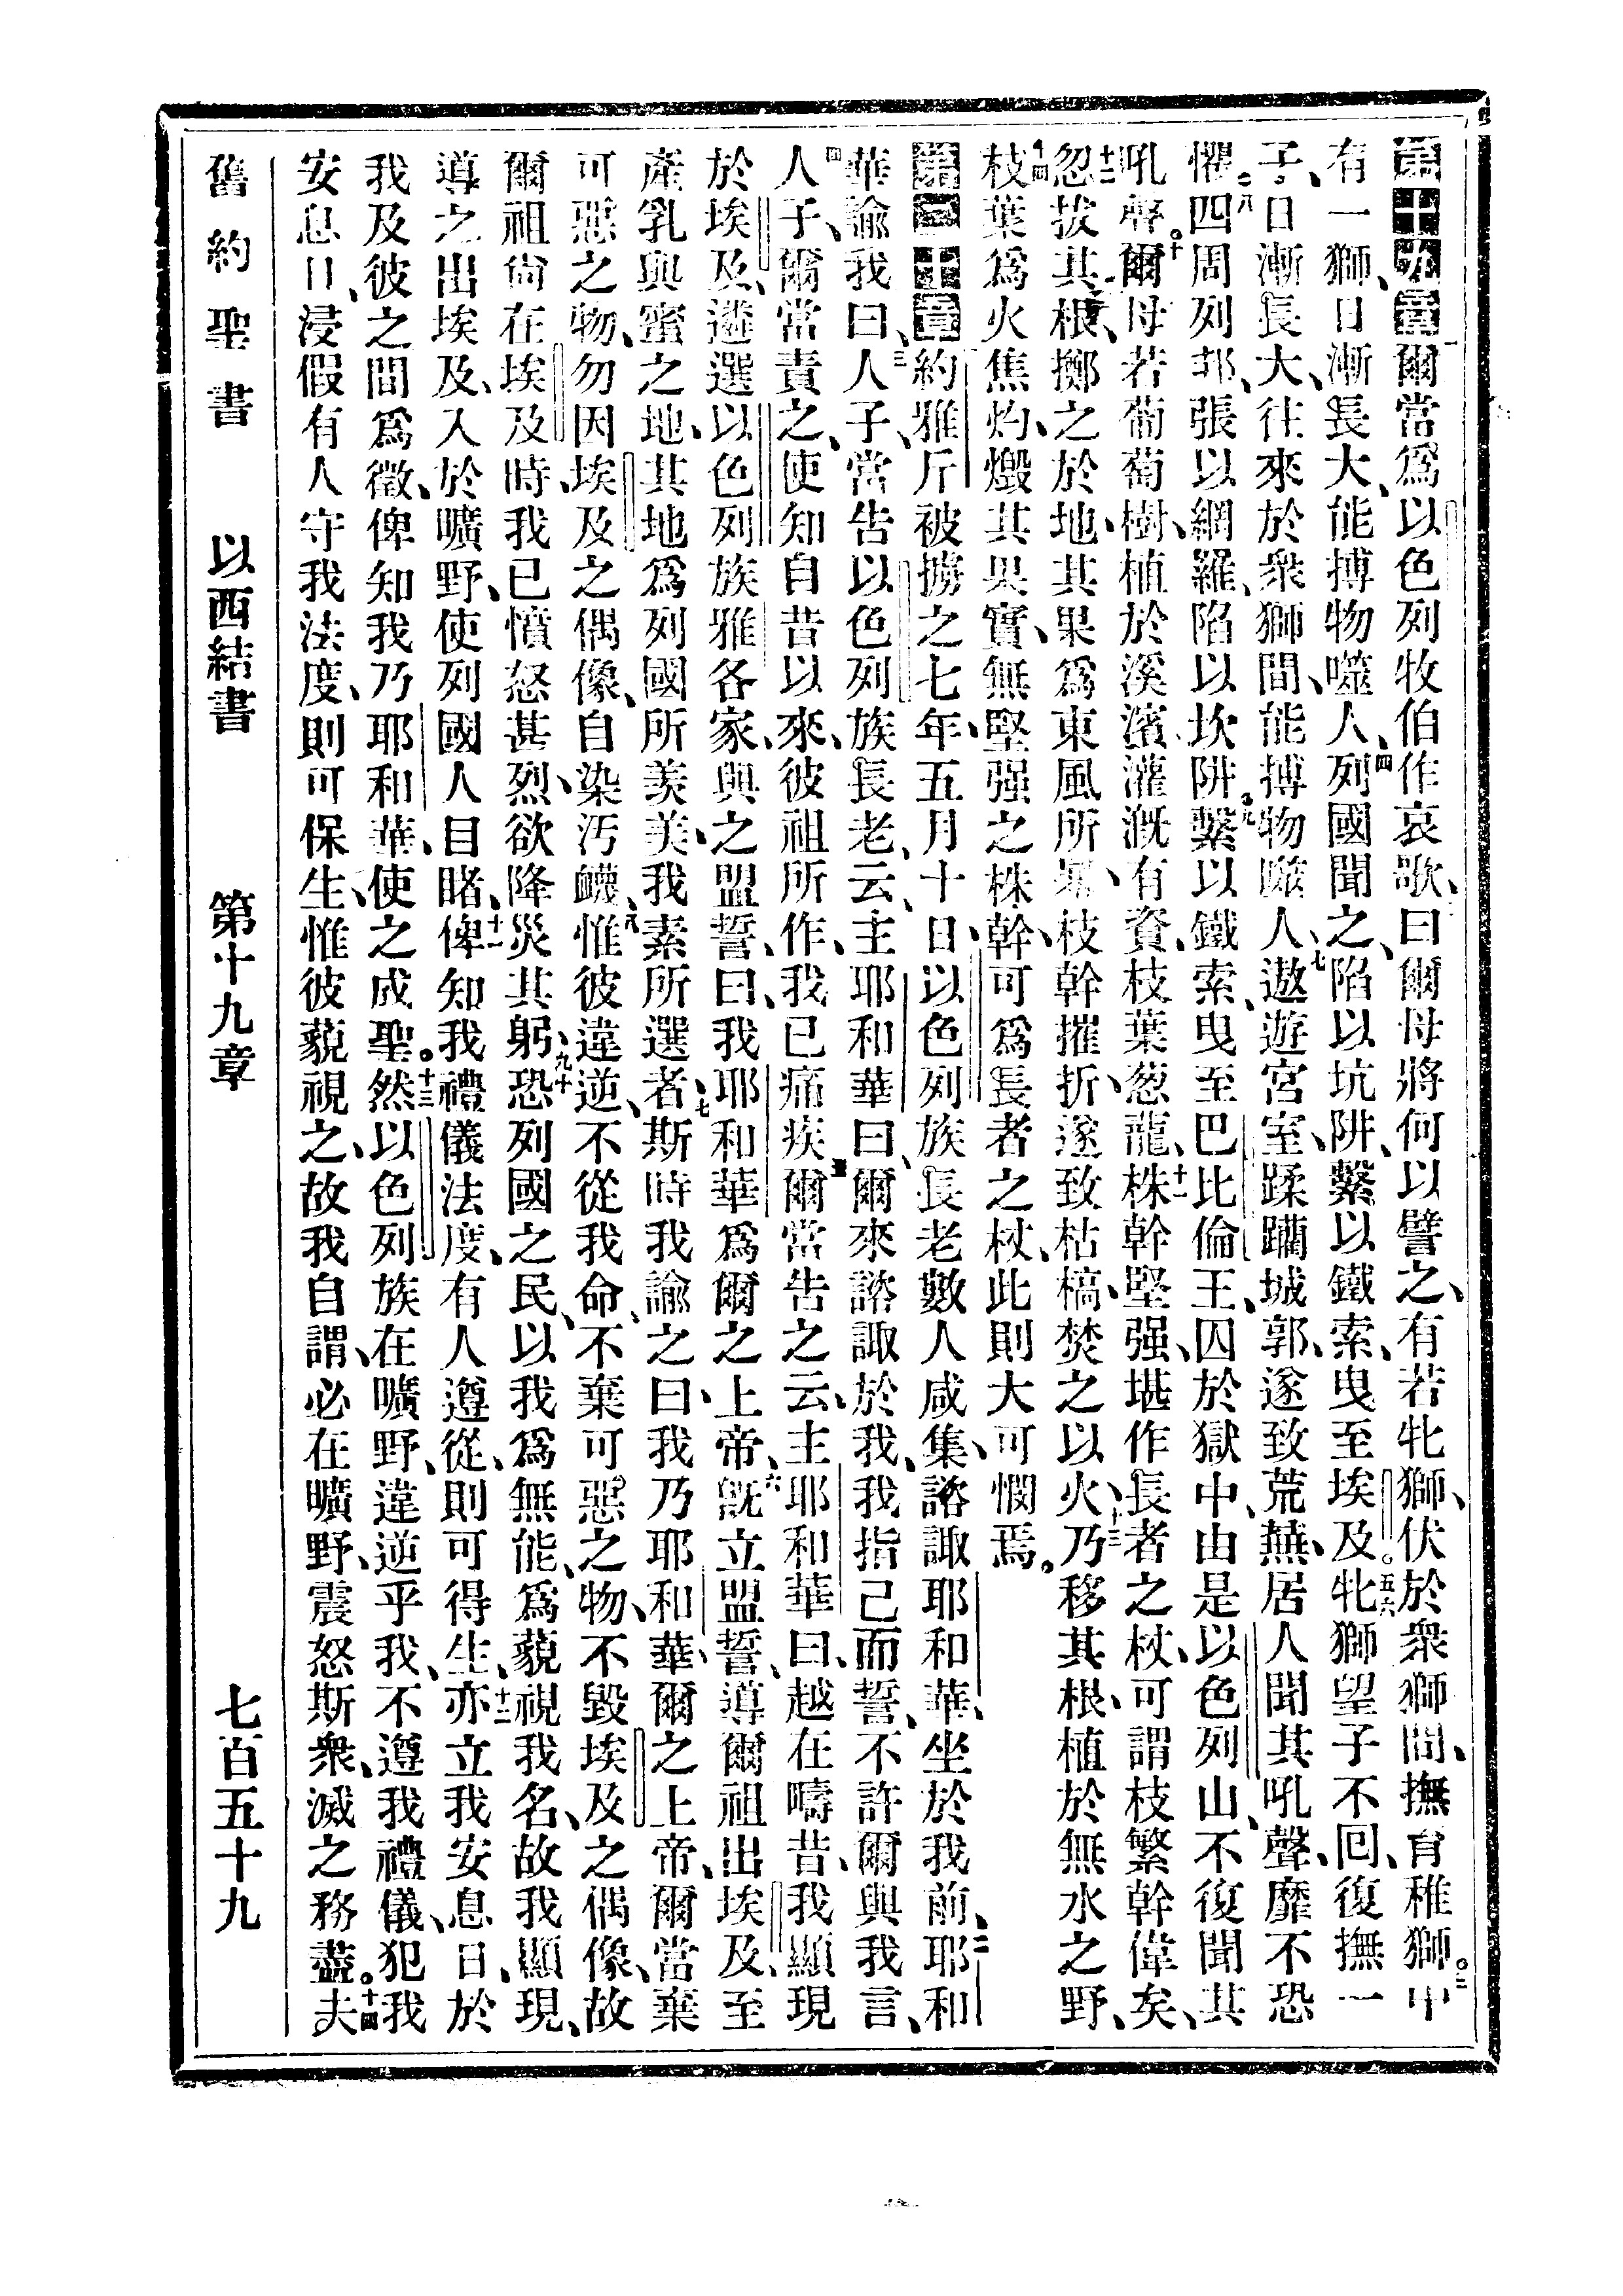 第十九章一爾當爲以色列牧伯作哀歌、二曰爾母將何以譬之、有若牝獅、伏於衆獅間、撫育稚獅。三中
有一獅、日漸長大、能搏物噬人、四列國聞之、陷以坑阱、繫以鐵索、曳至埃及。五六牝獅望子不回、復撫一
子、日漸長大、往來於衆獅間、能搏物噬人、七遨遊宮室、蹂躪城郭、遂致荒蕪、居人聞其吼聲、靡不恐
懼。八四周列邦、張以網羅、陷以坎阱。九繫以鐵索、曳至巴比倫王、囚於獄中、由是以色列山、不復聞其
吼聲。十爾母若葡萄樹、植於溪濱、灌溉有資、枝葉葱蘢、十一株幹堅强、堪作長者之杖、可謂枝繁幹偉矣、
十二忽拔其根、擲之於地、其果爲東風所暴、枝幹摧折、遂致枯槁、焚之以火、十三乃移其根、植於無水之野、
十四枝葉爲火焦灼、燬其果實、無堅强之株幹、可爲長者之杖、此則大可憫焉。
第二十章一約雅斤被擄之七年、五月十日、以色列族長老數人咸集、諮諏耶和華、坐於我前、二耶和
華諭我曰、三人子、當告以色列族長老、云、主耶和華曰、爾來諮諏於我、我指己而誓、不許爾與我言、
四人子、爾當責之、使知自昔以來、彼祖所作、我已痛疾、五爾當告之云、主耶和華曰、越在疇昔、我顯現
於埃及、遴選以色列族雅各家、與之盟誓、曰、我耶和華爲爾之上帝、六旣立盟誓、導爾祖出埃及、至
產乳與蜜之地、其地爲列國所羡美、我素所選者、七斯時我諭之曰、我乃耶和華、爾之上帝、爾當棄
可惡之物、勿因埃及之偶像、自染汚衊、八惟彼違逆、不從我命、不棄可惡之物、不毀埃及之偶像、故
爾祖尙在埃及時、我已憤怒甚烈、欲降災其躬、九十恐列國之民、以我爲無能、爲藐視我名、故我顯現、
導之出埃及、入於曠野、使列國人目睹、十一俾知我禮儀法度、有人遵從、則可得生、十二亦立我安息日、於
我及彼之間爲徵、俾知我乃耶和華、使之成聖。十三然以色列族在曠野、違逆乎我、不遵我禮儀、犯我
安息日、浸假有人守我法度、則可保生、惟彼藐視之、故我自謂、必在曠野、震怒斯衆、滅之務盡。十四夫
舊約聖書　以西結書　第十九章　七百五十九